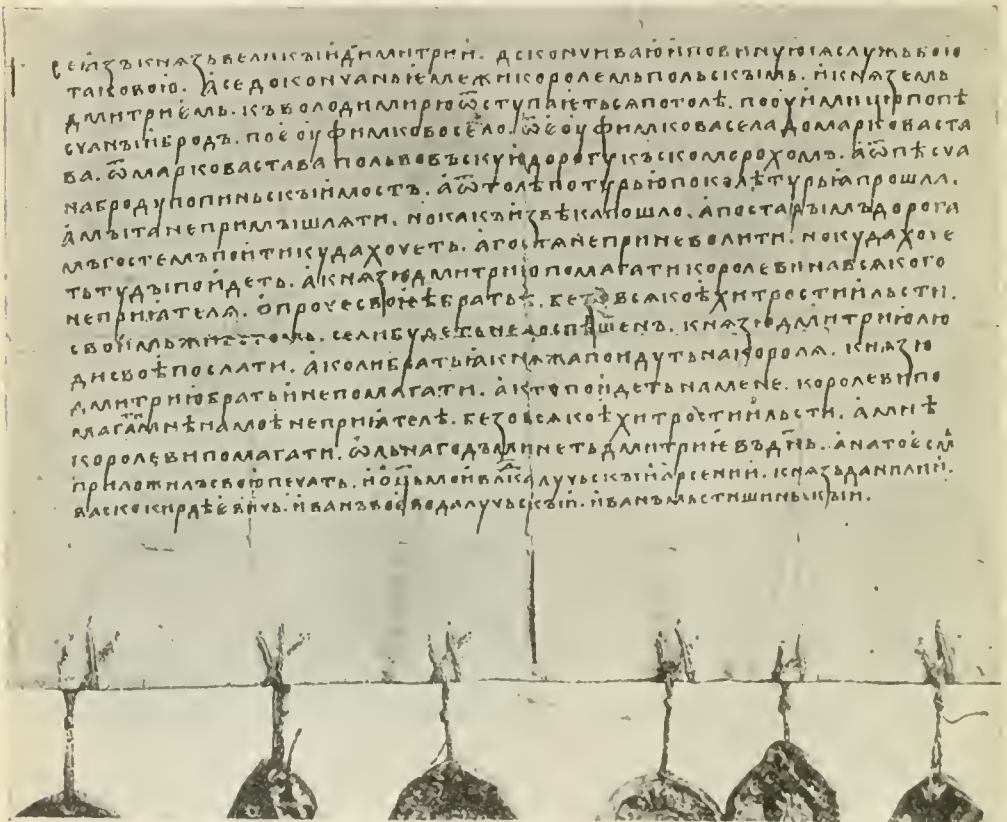 се ꙗзъ кнѧзь великъıи димитрии. докончиваю и повинуюсѧ службою
таковою. а се докончанье межи королемь польскъıмь. и кнѧземь
дмитриемь. къ володимирю ѿступаѥтьсѧ потолѣ. по
бродъ. по еоуфимково село. ѿ еоуфимкова села до маркова ста
ва. ѿ маркова става по львовьскую дорогу къ скоморохомъ. а ѿ
на броду по пиньскъıи мостъ. а ѿтолѣ по турью покалѣ турьꙗ прошла.
а мъıта не примъıшлѧти. но какъ извѣка пошло. а по старъıмъ дорога
мъ гостемъ поити куда хочеть. а гостѧ не приневолити. но куда хоче
ть тудъı поидеть. а кнѧзю дмитрию помагати королеви на всѧкого
неприꙗтелѧ. опроче своѥѣ братьѣ. безо всѧкоѣ хитрости и льсти.
своимь животомь. сели будеть недоспѣшенъ. кнѧзю дмитрию лю
ди своѣ послати. а коли братьꙗ кнѧжа поидуть на королѧ. кнѧзю
дмитрию братьи не помагати. а кто поидеть на мене. королеви по
магати мнѣ на моѣ неприꙗтелѣ. безо всѧкоѣ хитрости и льсти. а мнѣ
королеви помагати. минеть дмитриѥвъ днь. а на то есмь
приложилъ свою печать. и оць мои влка лучьскъıи арсении. кнѧзь данилии.
васко кирдѣевичь. иванъ воевода лучьскъıи. иванъ мьстишиньскъıи.